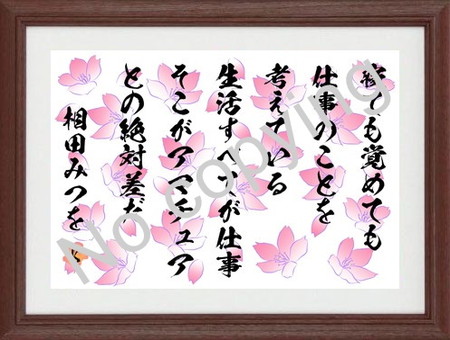 寝ても覚めても
仕事のことを
考えている
生活すべてが仕事
そこがアマチュア
との絶対差だ
相田みつを
No copying